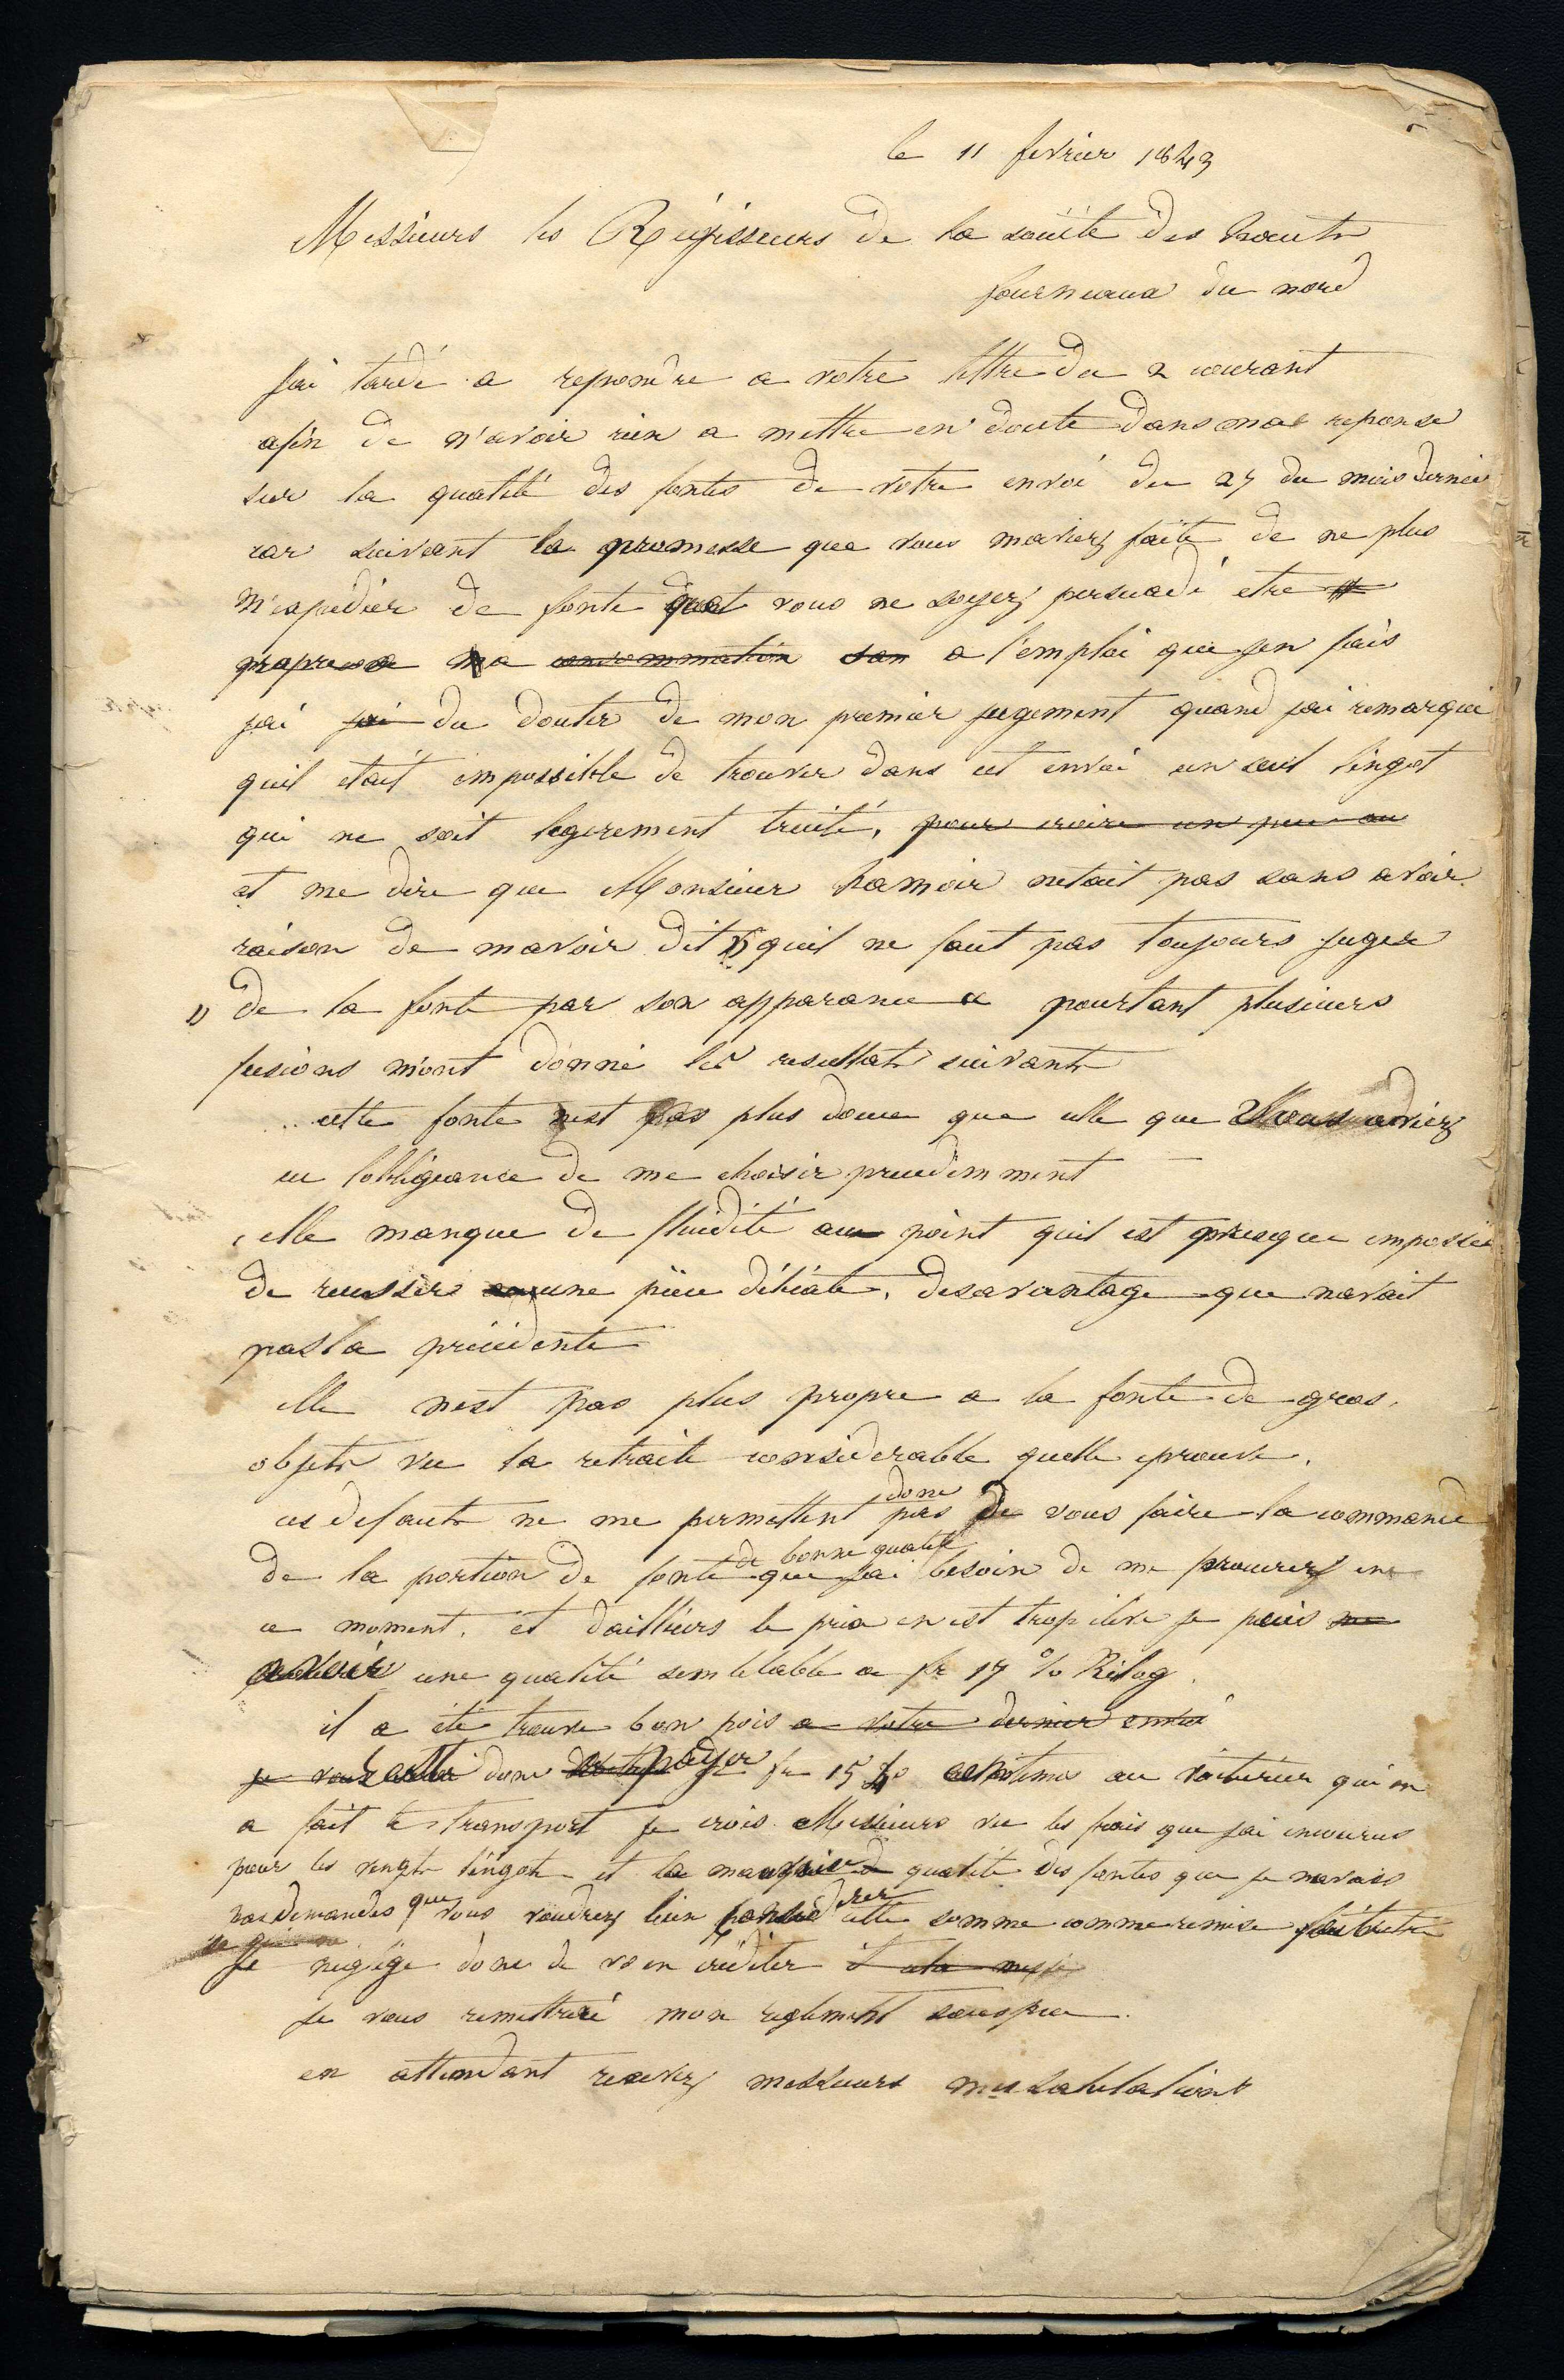 le 11 fevrier 1843
Messieurs les Régisseurs de la société des hauts
fourneaux du nord
jai tardé a repondre a votre lettre du 2 courant
afin de n'avoir rien a mettre en doute dans ma reponse
sur la qualité des fontes de votre envoi du 27 du mois dernier
car suivant la promesse que vous maviez faite de ne plus
m'expedier de fonte dont vous ne soyez persuadé etre
propre a ma consommation son a l'emploi que jen fais
jai jai du douter de mon premier jugement quand jai remarqué
quil etait impossible de trouver dans cet envoi un seul lingot
qui ne soit legerement truité, pour croire un peu au
et me dire que Monsieur hamoir netait pas sans avoir
raison de mavoir dit " quil ne faut pas toujours juger
" de la fonte par son apparance " pourtant plusieurs
fusions m'ont donné les resultats suivants
cette fonte nest pas plus douce que celle que vous aviez
eu l'obligeance de me choisir precedemment
elle manque de fluidité au point quil est presque impossi
de reussir une pièce délicate, desavantage que navait
pas la précédente
elle nest pas plus propre a la fonte de gros
objets vu la retraite considerable quelle eprouve.
ces defauts ne me permettent donc pas de vous faire la commande
de la portion de fonte de bonne qualité que jai besoin de me procurer en
ce moment. et dailleurs le prix en est trop elevé je puis me
avoir une qualité semblable a fr 17 % Kilog.
il a été trouvé bon pois a votre dernier envoi
je donc payer fr 15 centimes au voiturier qui en
a fait le transport je crois Messieurs vu les frais que jai encourus
pour les vingt lingots et la mauvaise qualité des fontes que je navais
pas demandés que vous voudrez bien considerer cette somme comme remise
je neglige donc de vs en créditer
je vous remettrai mon reglement sous peu.
en attendant recevez messieurs mes salutations